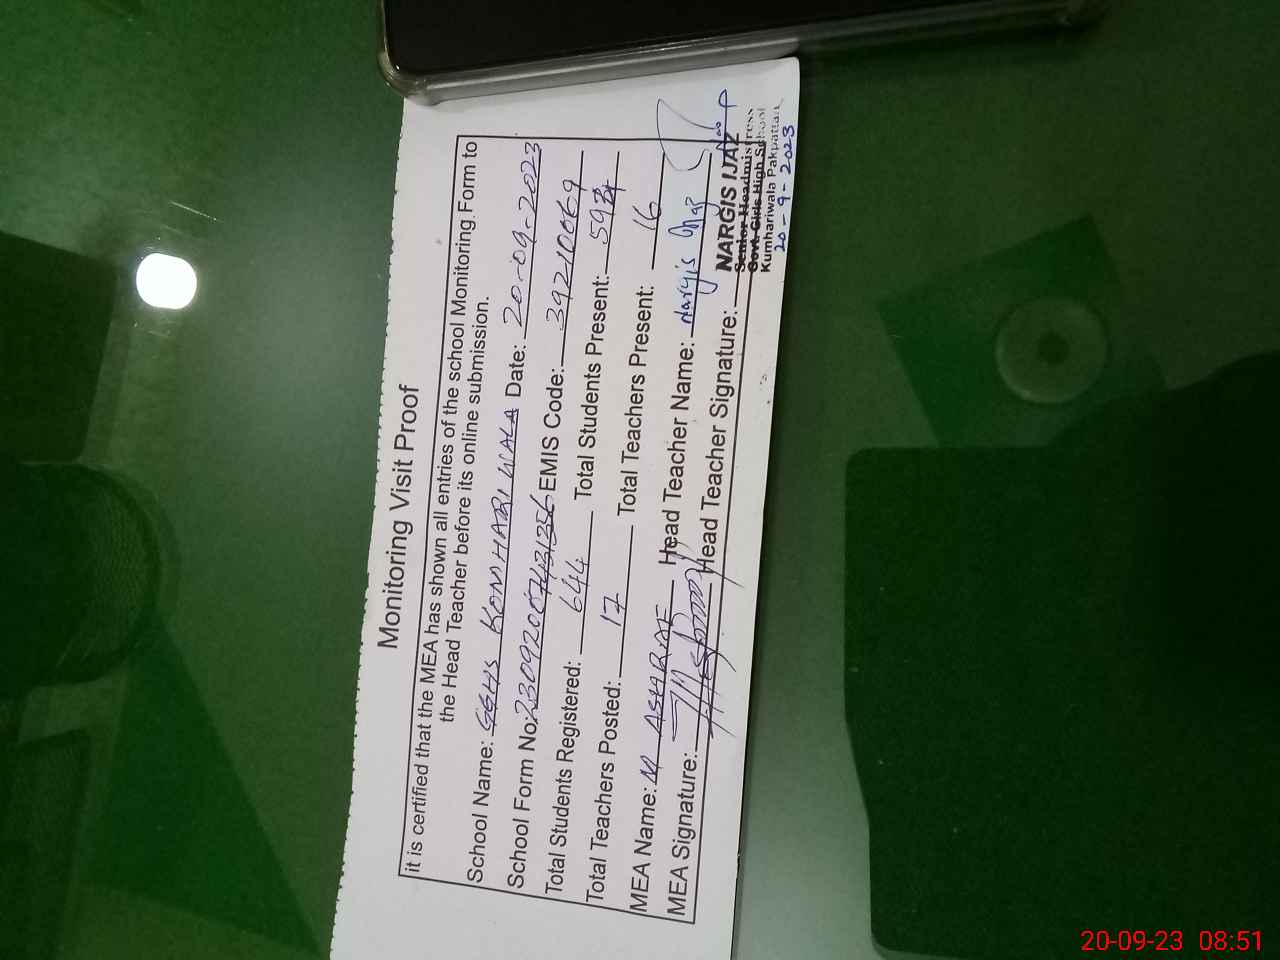 Monitoring Visit Proof
it is certified that the MEA has shown all entries of the school Monitoring Form to
the Head Teacher before its online submission.
School Name: GGHS KOMHARI WALA Date: 20-09-2023
School Form No: EMIS Code: 39210069
Total Students Registered: 644 Total Students Present:
Total Teachers Posted: 17 Total Teachers Present: 16
MEA Name: M ASHRAF Head Teacher Name: Nargis Ijaz
MEA Signature: Head Teacher Signature:
NARGIS IJAZ
Senior Headmistress
Govt. Girls High School
Kumhariwala Pakpattan
20-9-2023
20-09-23 08:51